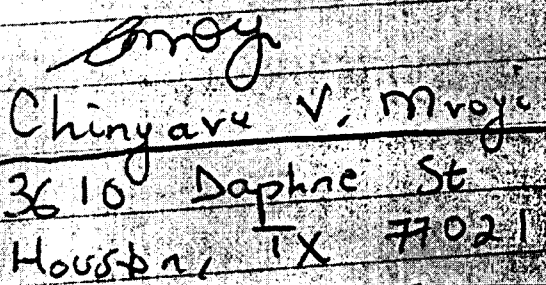 Chinyavu V. Mroyi
3610 Daphne St
Houston, TX 77021